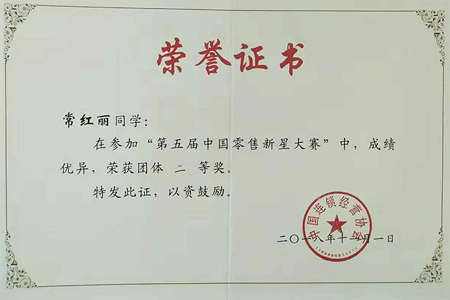 荣誉证书
常红丽同学：
在参加“第五届中国零售新星大赛”中，成绩
优异，荣获团体 二 等奖。
特发此证，以资鼓励。
中国连锁经营协会
二〇一八年十一月一日